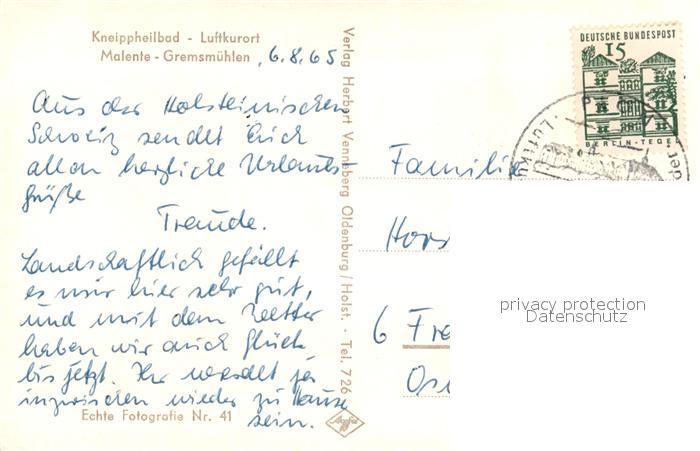 Kneippheilbad - Luftkurort
Malente - Gremsmühlen , 6.8.65
Aus der Holsteinischen
Schweiz sendet Euch
allen herzliche Urlaubs-
grüße
Traude.
Landschaftlich gefällt
es mir hier sehr gut,
und mit dem Wetter
haben wir auch Glück
bis jetzt. Ihr werdet ja
inzwischen wieder zu Hause
sein.
Echte Fotografie Nr. 41
Agfa
Verlag Herbert Venneberg Oldenburg/Holst. · Tel. 726
DEUTSCHE BUNDESPOST
15
BERLIN-TEGEL
Familie
Hors
6 Fra
privacy protection
Datenschutz